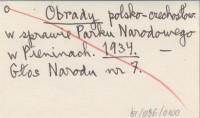 Obrady polsko-czechosłow.
w sprawie Parku Narodowego
w Pieninach. 1934. —
Głos Narodu nr 7.